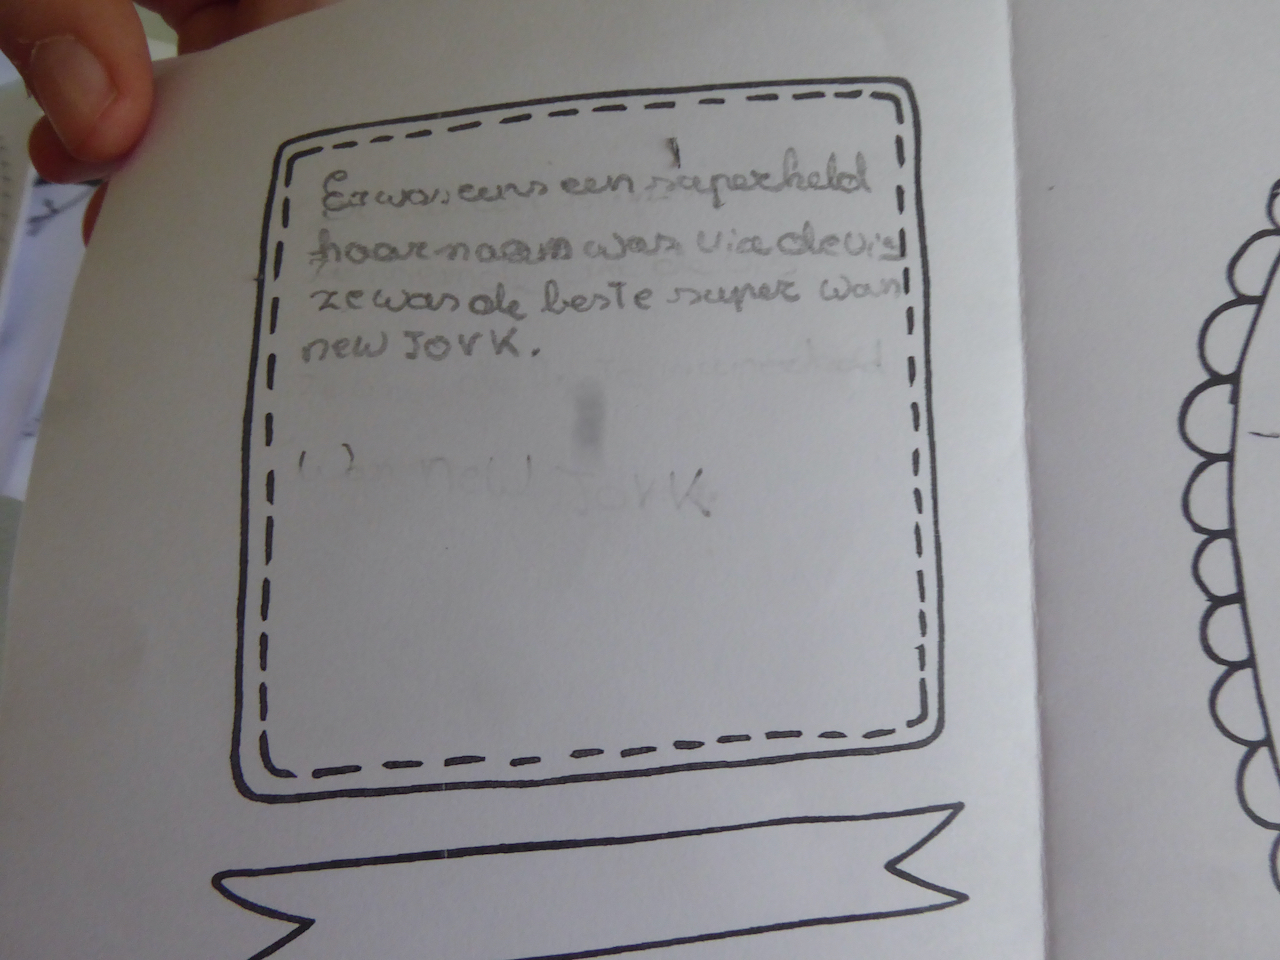 Er was eens een superheld
haar naam was via devis
ze was de beste super wan
new JorK.
wan new JorK.